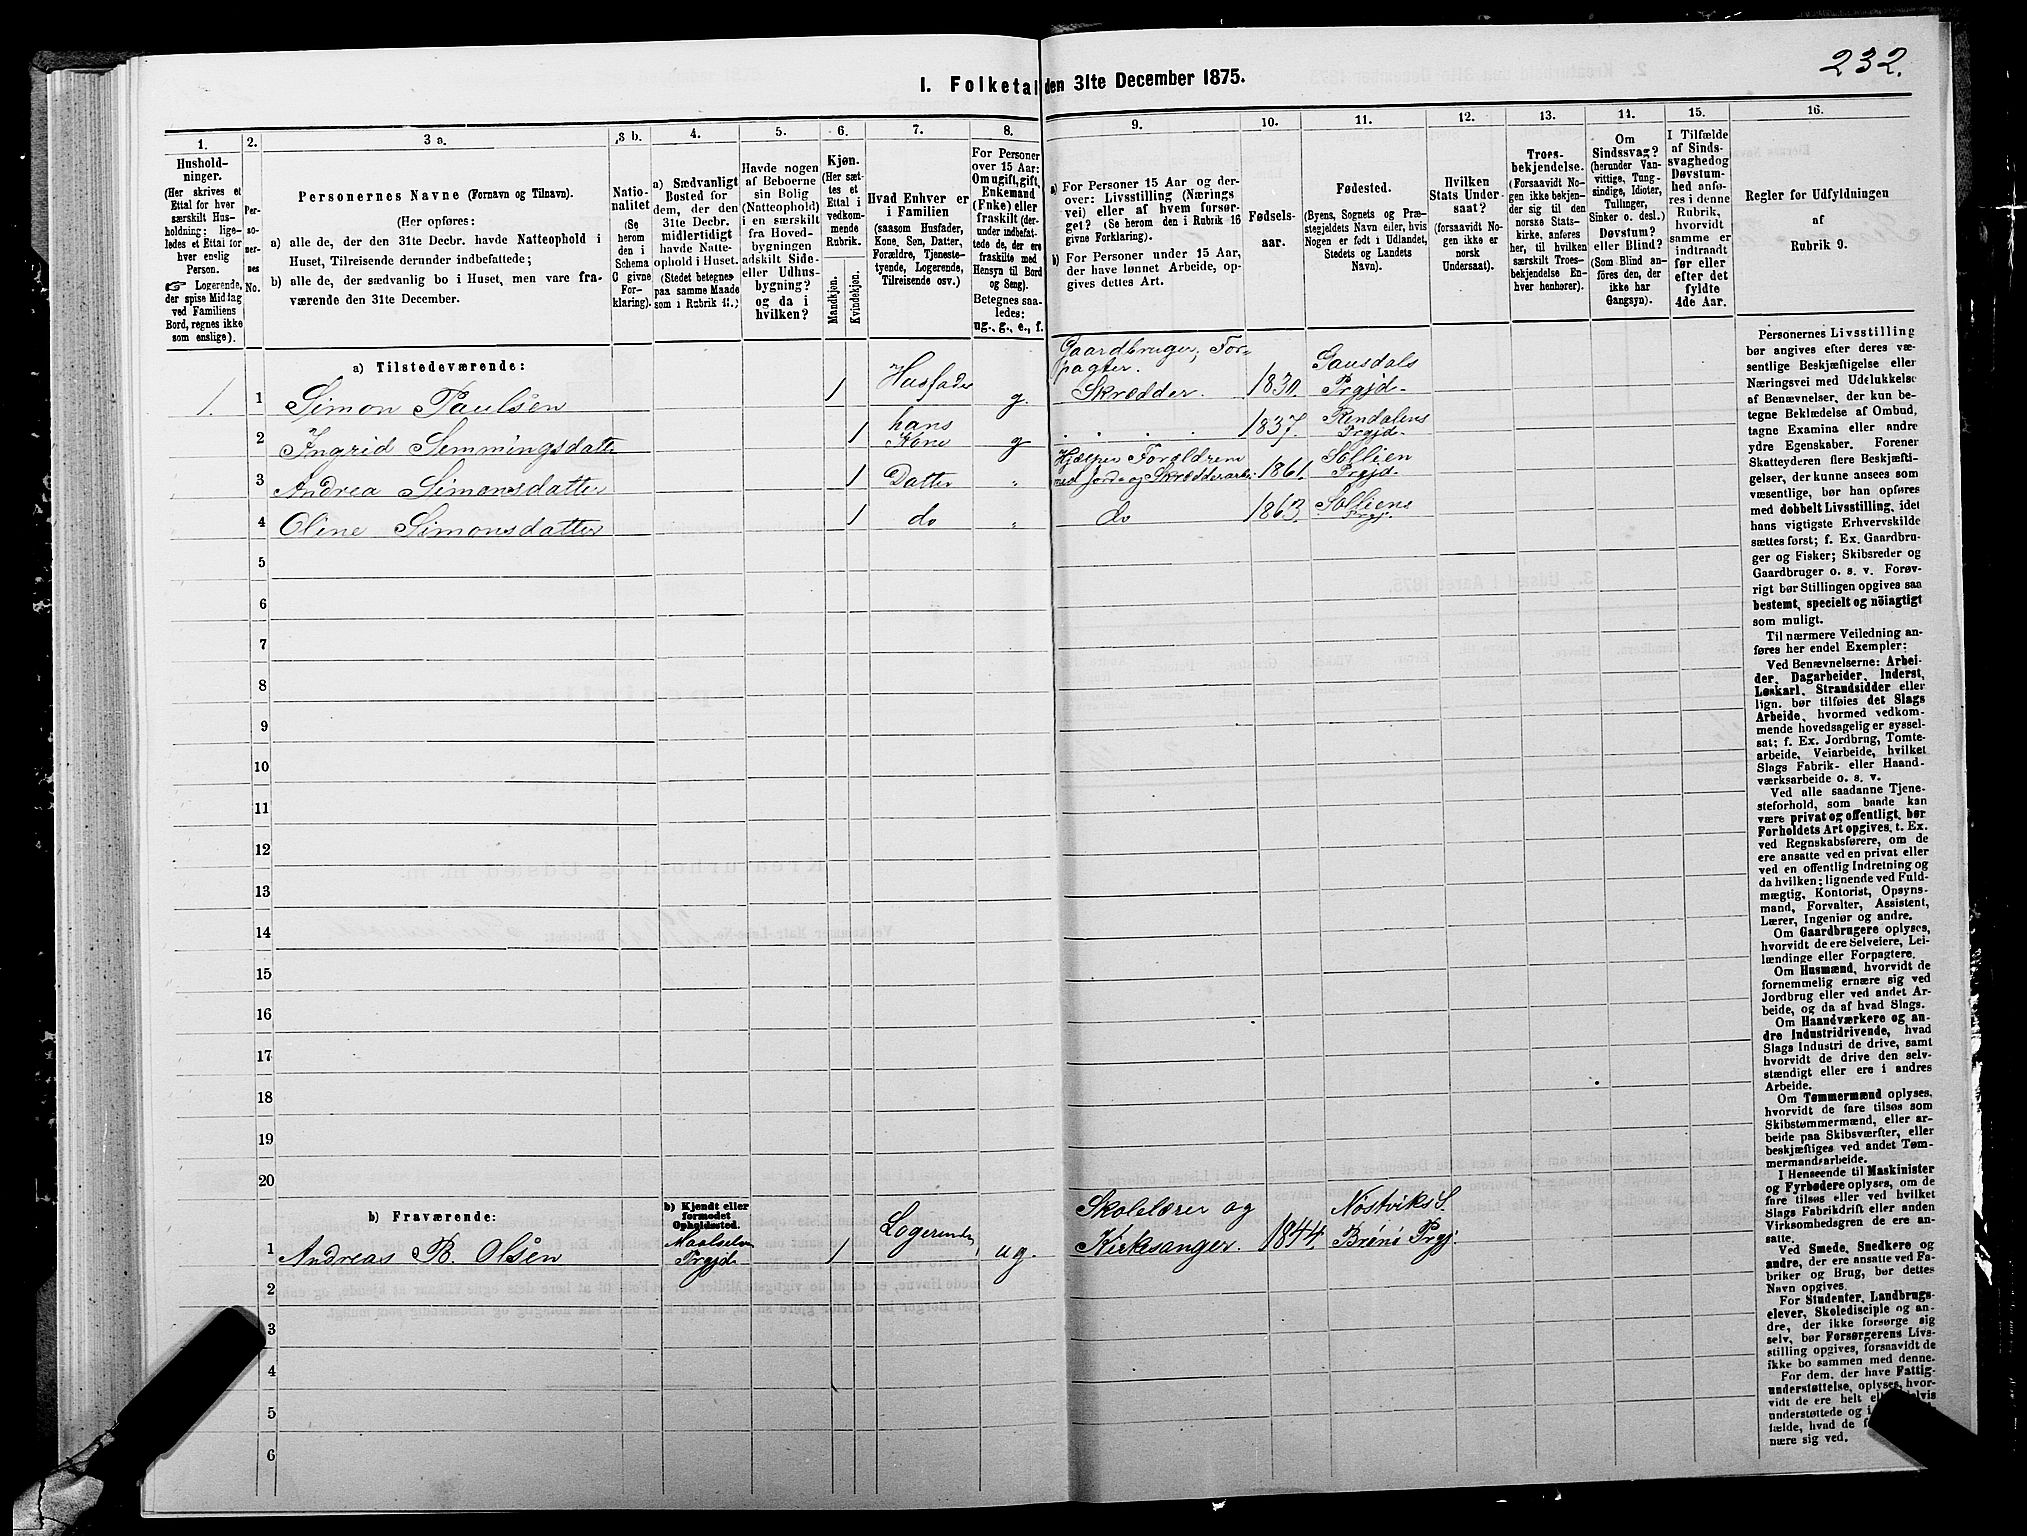 232.
I. Folketal den 31te December 1875.
1.
Hushold-
ninger.
(Her skrives et
Ettal for hver
særskilt Hus-
holdning; lige-
ledes et Ettal for
hver enslig
Person.
☞ Logerende,
der spise Middag
ved Familiens
Bord, regnes ikke
som enslige).
2.
Per-
so-
ner-
nes
No.
3 a.
Personernes Navne (Fornavn og Tilnavn).
(Her opføres:
a) alle de, der den 31te Decbr. havde Natteophold i
Huset, Tilreisende derunder indbefattede;
b) alle de, der sædvanlig bo i Huset, men vare fra-
værende den 31te December.
3 b.
Natio-
nalitet
(Se
herom
den i
Schema
C givne
For-
klaring).
4.
a) Sædvanligt
Bosted for
dem, der den
31te Decbr.
midlertidigt
havde Natte-
ophold i Huset.
(Stedet betegnes
paa samme Maade
som i Rubrik 11.)
5.
Havde nogen
af Beboerne
sin Bolig
(Natteophold)
i en særskilt
fra Hoved-
bygningen
adskilt Side-
eller Udhus-
bygning?
og da i
hvilken?
6.
Kjøn.
(Her sæt-
tes et
Ettal i
vedkom-
mende
Rubrik.
Mandkjøn.
Kvindekjøn.
7.
Hvad Enhver er
i Familien
(saasom Husfader,
Kone, Søn, Datter,
Forældre, Tjeneste-
tyende, Logerende,
Tilreisende osv.)
8.
For Personer
over 15 Aar:
Om ugift, gift,
Enkemand
(Enke) eller
fraskilt (der-
under indbefat-
tede de, der ere
fraskilte med
Hensyn til Bord
og Seng).
Betegnes saa-
ledes:
ug., g., e., f.
9.
a) For Personer 15 Aar og der-
over: Livsstilling (Nærings-
vei) eller af hvem forsør-
get? (Se herom den i Rubrik 16
givne Forklaring).
b) For Personer under 15 Aar,
der have lønnet Arbeide, op-
gives dettes Art.
10.
Fødsels-
aar.
11.
Fødested.
(Byens, Sognets og Præ-
stegjeldets Navn eller, hvis
Nogen er født i Udlandet,
Stedets og Landets
Navn).
12.
Hvilken
Stats Under-
saat?
(forsaavidt No-
gen ikke er
norsk
Undersaat).
13.
Troes-
bekjendelse.
(Forsaavidt No-
gen ikke bekjen-
der sig til den
norske Stats-
kirke, anføres
her, til hvilken
særskilt Troes-
bekjendelse En-
hver henhører).
14.
Om
Sindssvag?
(herunder Van-
vittige, Tung-
sindige, Idioter,
Tullinger,
Sinker o. desl.)
Døvstum?
eller Blind?
(Som Blind an-
føres den, der
ikke har
Gangsyn).
15.
I Tilfælde
af Sinds-
svaghed og
Døvstum-
hed anfø-
res i denne
Rubrik,
hvorvidt
samme er
indtraadt
før eller
efter det
fyldte
4de Aar.
16.
Regler for Udfyldningen
af
Rubrik 9.
a) Tilstedeværende:
1. 1 Simon Paulsen 1 Husfader g. Gaardbruger, For-
pagter.
Skrædder. 1830. Gausdals
Prgjd.
2 Ingrid Semmingsdatter 1 hans
Kone g . . . . 1837. Rendalens
Prgjd.
3 Andrea Simonsdatter 1 Datter „ Hjælper Forældrene
med Jord og Skrædderarb. 1861. Sollien
Prgjd.
4 Oline Simonsdatter 1 do „ do 1863. Solliens
Prgj.
5
6
7
8
9
10
11
12
13
14
15
16
17
18
19
20
b) Fraværende:
b) Kjendt eller
formodet
Opholdssted.
1 Andreas B. Olsen Maalselven
Prgjd. 1 Logerende ug. Skolelærer og
Kirkesanger. 1844. Nøstviks S.
Brønø Prgj.
2
3
4
5
6
Personernes Livsstilling
bør angives efter deres væ-
sentlige Beskjæftigelse eller
Næringsvei med Udelukkelse
af Benævnelser, der kun be-
tegne Beklædelse af Ombud,
tagne Examina eller andre
ydre Egenskaber. Forener
Skatteyderen flere Beskjæfti-
gelser, der kunne ansees som
væsentlige, bør han opføres
med dobbelt Livsstilling, idet
hans vigtigste Erhvervskilde
sættes først; f. Ex. Gaardbru-
ger og Fisker; Skibsreder og
Gaardbruger o. s. v. Forøv-
rigt bør Stillingen opgives saa
bestemt, specielt og nöiagtigt
som muligt.
Til nærmere Veiledning an-
føres her endel Exempler:
Ved Benævnelserne: Arbei-
der, Dagarbeider, Inderst,
Løskarl, Strandsidder eller
lign. bør tilføies det Slags
Arbeide, hvormed vedkom-
mende hovedsagelig er syssel-
sat; f. Ex. Jordbrug, Tomte-
arbeide, Veiarbeide, hvilket
Slags Fabrik- eller Haand-
værksarbeide o. s. v.
Ved alle saadanne Tjene-
steforhold, som baade kan
være privat og offentligt, bør
Forholdets Art opgives, t. Ex.
ved Regnskabsførere, om de
ere ansatte ved en privat eller
ved en offentlig Indretning og
da hvilken; lignende ved Fuld-
mægtig, Kontorist, Opsyns-
mand, Forvalter, Assistent,
Lærer, Ingeniør og andre.
Om Gaardbrugere oplyses,
hvorvidt de ere Selveiere, Lei-
lændinge eller Forpagtere.
Om Husmænd, hvorvidt de
fornemmelig ernære sig ved
Jordbrug eller ved andet Ar-
beide, og da af hvad Slags.
Om Haandværkere og an-
dre Industridrivende, hvad
Slags Industri de drive, samt
hvorvidt de drive den selv-
stændigt eller ere i andres
Arbeide.
Om Tømmermænd oplyses,
hvorvidt de fare tilsøs som
Skibstømmermænd, eller ar-
beide paa Skibsværfter, eller
beskjæftiges ved andet Tøm-
mermandsarbeide.
I Henseende til Maskinister
og Fyrbødere oplyses, om de
fare tilsøs eller ved hvilket
Slags Fabrikdrift eller anden
Virksomhedsgren de ere an-
satte.
Ved Smede, Snedkere og
andre, der ere ansatte ved Fa-
briker og Brug, bør dettes
Navn opgives.
For Studenter, Landbrugs-
elever, Skoledisciple og an-
dre, der ikke forsørge sig
selv, bør Forsørgerens Livs-
stilling opgives, forsaavidt de
ikke bo sammen med denne.
For dem, der have Fattig-
understøttelse, oplyses, hvor-
vidt de ere helt
understøttede og i
fælde, hvad de
nære sig ved.